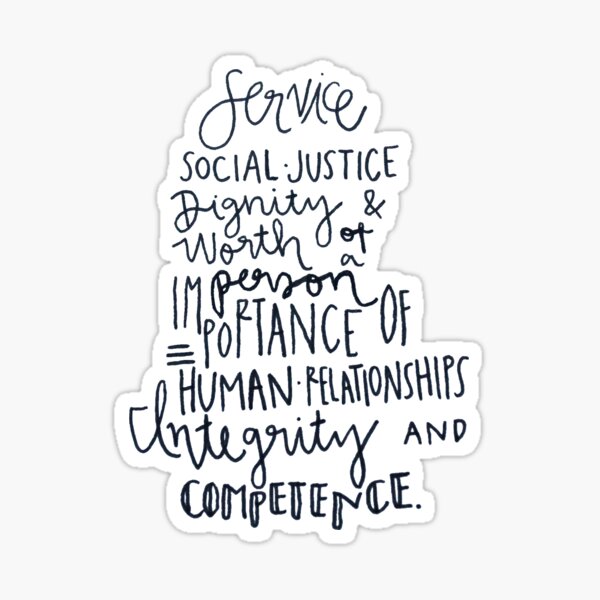 Service
SOCIAL·JUSTICE
Dignity &
Worth of
a
IM person
PORTANCE OF
HUMAN·RELATIONSHIPS
Integrity AND
COMPETENCE.